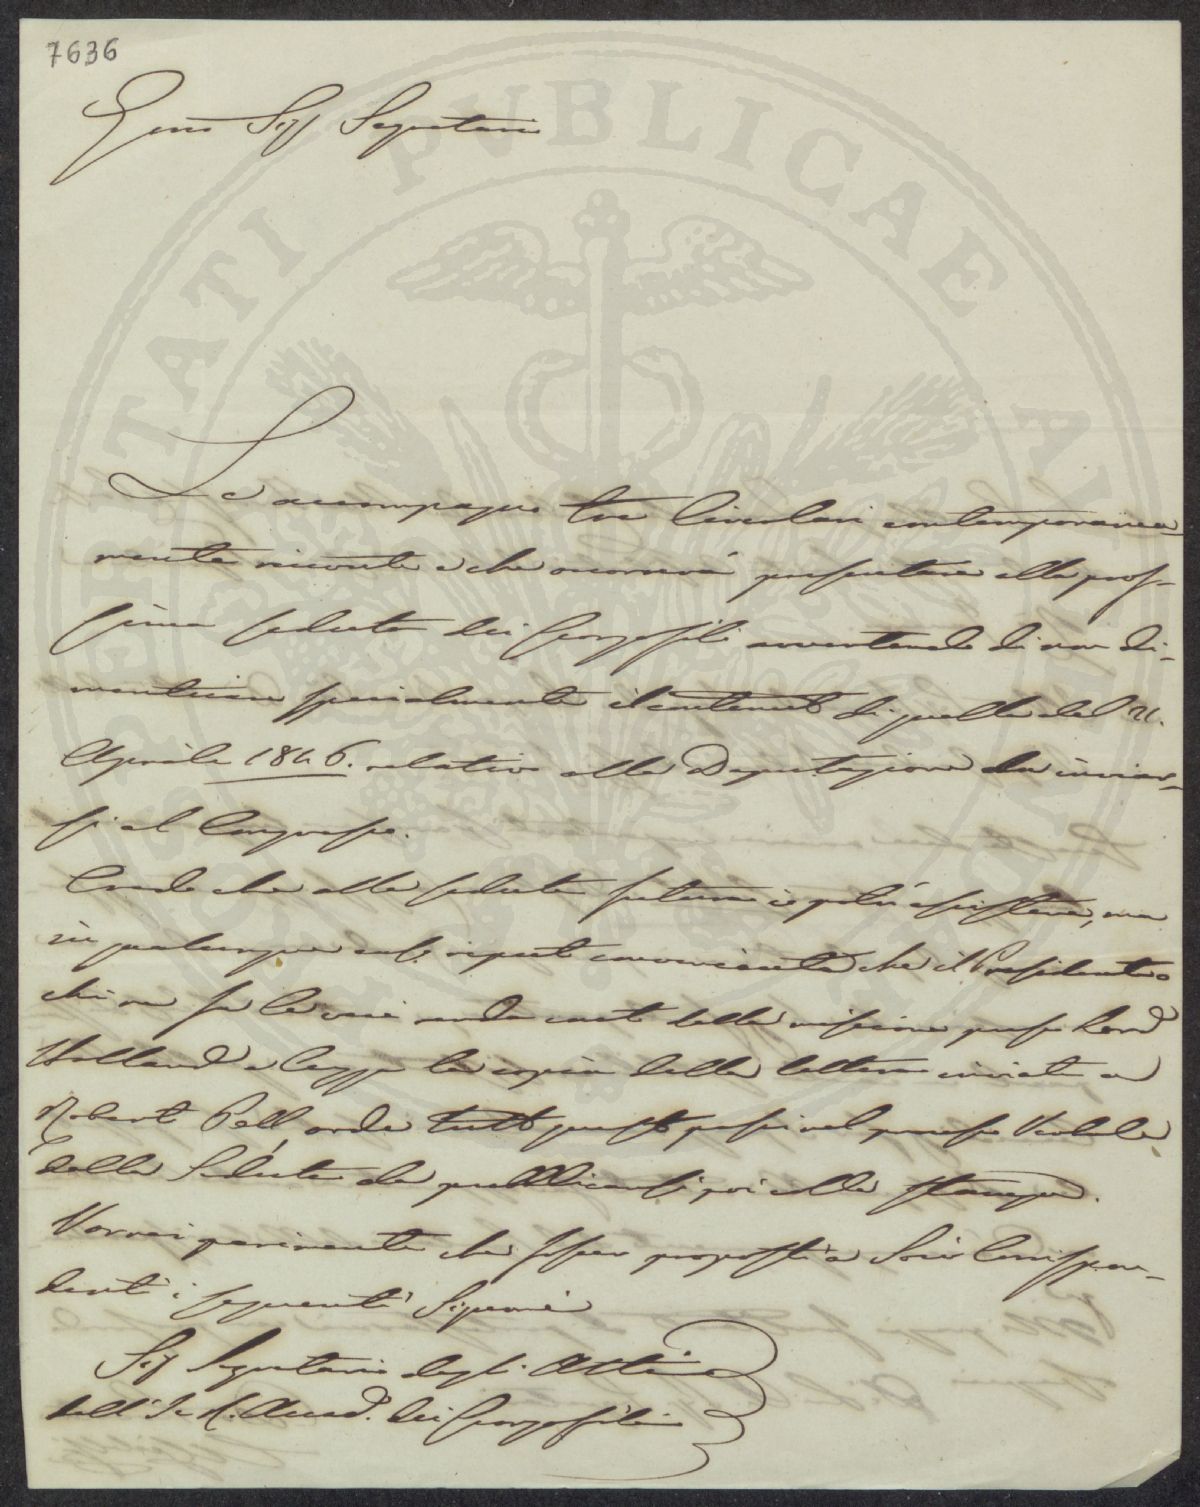 7636
PROSPERITATI PUBLICAE AUGENDAE
Sigr Segretario
Le accompagno tre Circolari contemporanea-
mente ricevute e che occorrerà presentare alla pros-
sima seduta dei Georgofili avvertendo di non di-
menticare specialmente il contenuto di quella del 21.
Aprile 1846. relativa alla Deputazione da inviar-
si al Congresso.
Credo che alla seduta futura io potrò assistere, ma
in qualunque caso reputo conveniente che il Presidente o
chi ne fa le veci renda conto della missione presso Lord
Holland e legga la copia della lettera inviata a
Robert Peel onde tutto questo passi nel processo Verbale
della Seduta da pubblicarsi poi colla stampa.
Vorrei parimente che fosser proposti a Socio Corrispon-
denti i seguenti Signori
Sigr Segretario degli Atti
dell' I. e R. Accad. dei Georgofili